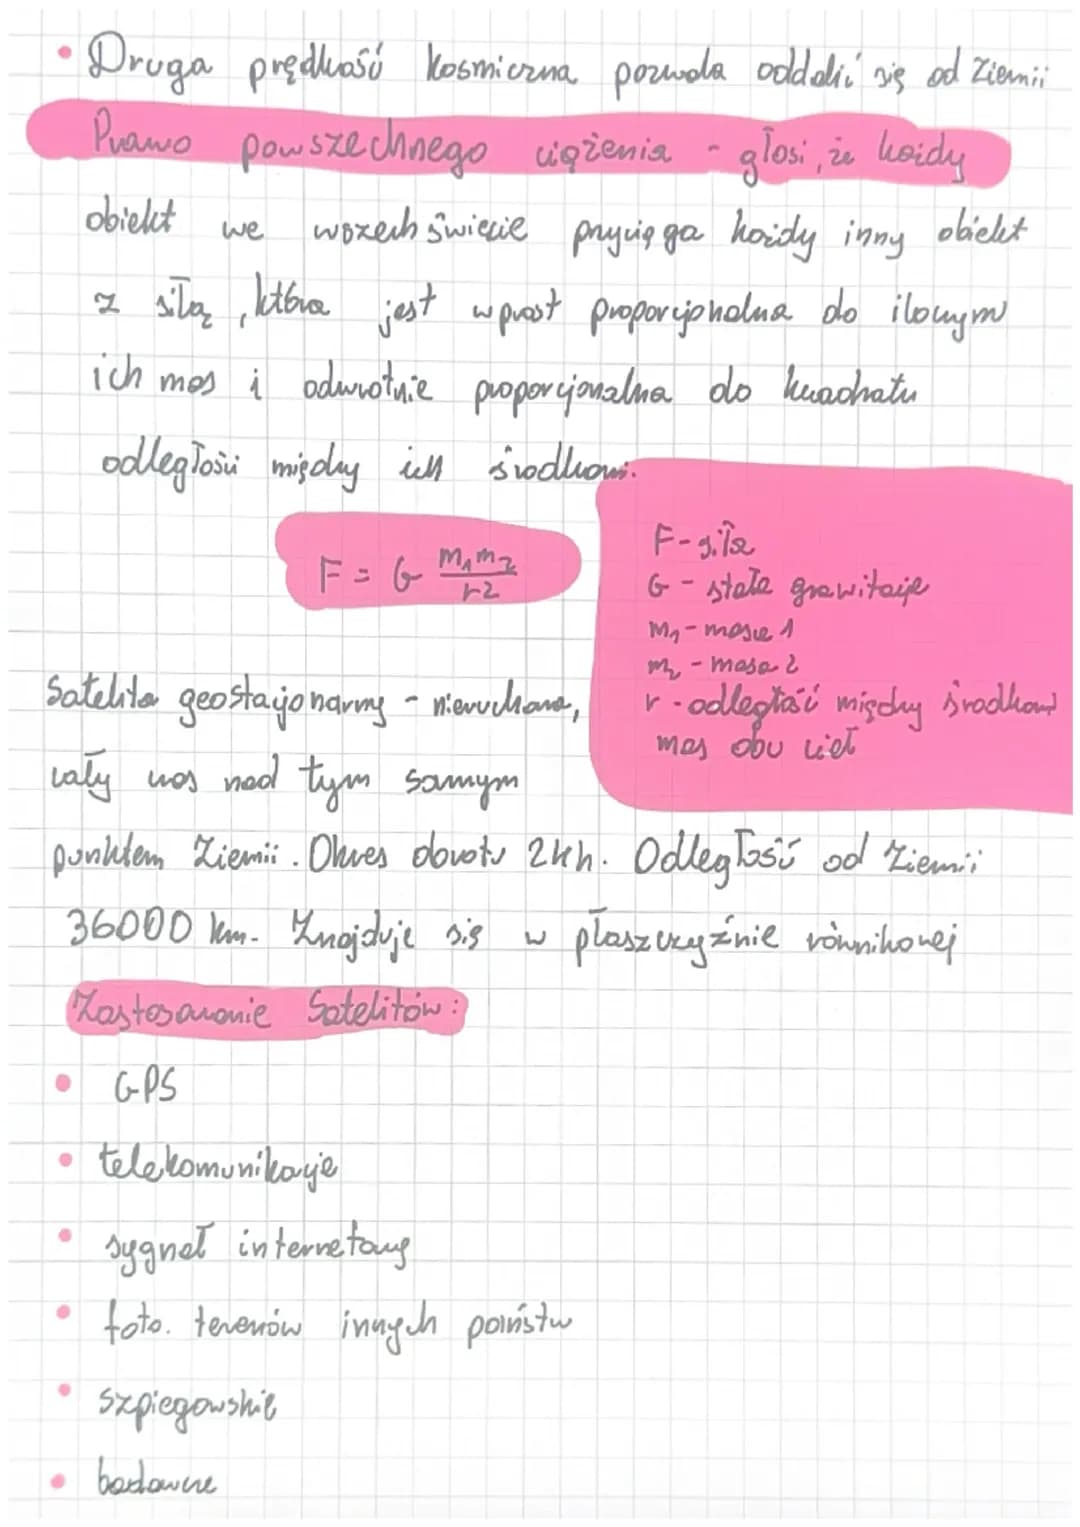 • Druga prędkość kosmiczna pozwala oddalić się od Ziemii
Prawo powszechnego ciążenia - głosi, że każdy
obiekt we wszechświecie przyciąga każdy inny obiekt
z siłą, która jest wprost proporcjonalna do iloczynu
ich mas i odwrotnie proporcjonalna do kwadratu
odległości między ich środkami.
F = G m₁m₂/r2
F - siła
G - stała grawitacji
m₁ - masa 1
m₂ - masa 2
r - odległość między środkami
mas obu ciał
Satelita geostacjonarny - nieruchoma,
cały czas nad tym samym
punktem Ziemii. Okres obrotu 24h. Odległość od Ziemii
36000 km. Znajduje się w płaszczyźnie równikowej
Zastosowanie Satelitów:
• GPS
• telekomunikacje
• sygnał internetowy
• foto. terenów innych państw
• szpiegowskie
• badawcze